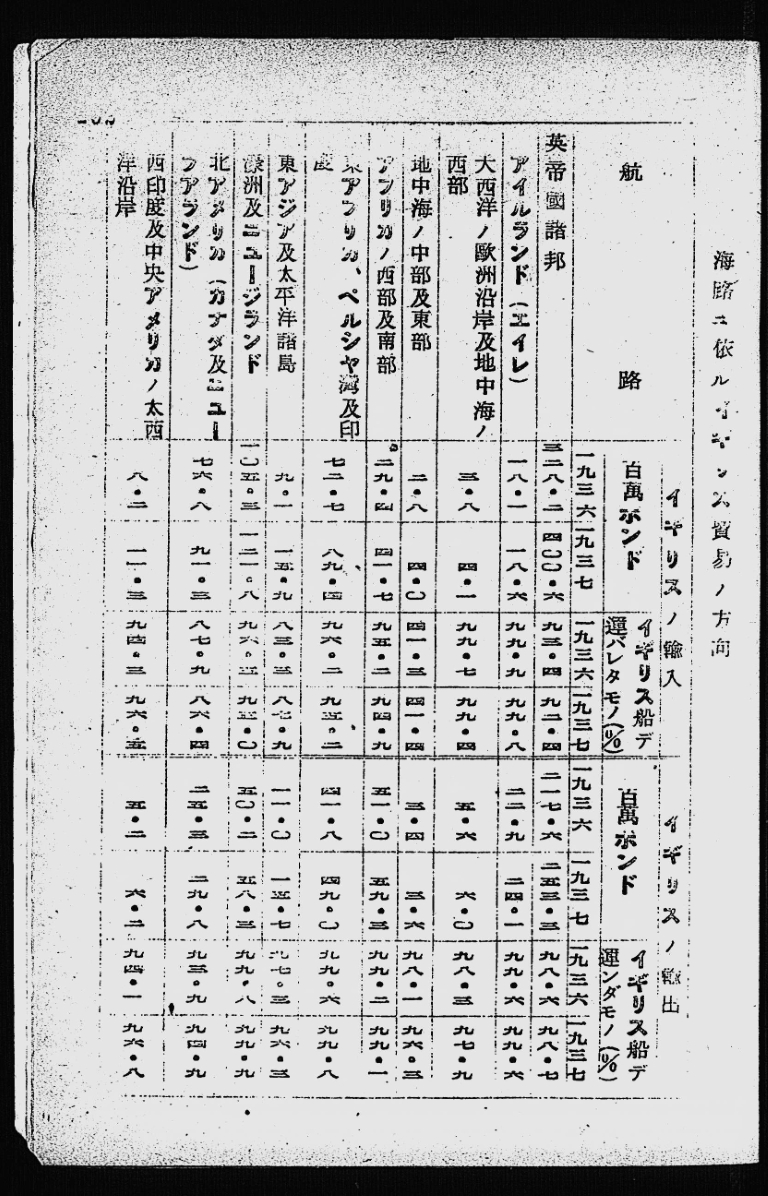 海路ニ依ルイギリス貿易ノ方向
イギリスノ輸入 イギリスノ輸出
航路 百萬ポンド イギリス船デ 百萬ポンド イギリス船デ
運バレタモノ(%) 運ンダモノ(%)
一九三六 一九三七 一九三六 一九三七 一九三六 一九三七 一九三六 一九三七
英帝國諸邦 三二八・二 四〇〇・六 九三・四 九二・四 二一七・六 二五三・三 九八・六 九八・七
アイルランド(エイレ) 一八・一 一八・六 九九・九 九九・八 二二・九 二四・一 九九・六 九九・六
大西洋ノ歐洲沿岸及地中海ノ
西部 三・八 四・一 九九・七 九九・四 五・六 六・〇 九八・三 九七・九
地中海ノ中部及東部 二・八 四・〇 四一・三 四一・四 三・四 三・六 九八・一 九六・三
アフリカノ西部及南部 二九・四 四一・七 九五・二 九四・九 五一・〇 五九・三 九九・二 九九・一
東アフリカ、ペルシヤ灣及印
度 七二・七 八九・四 九六・二 九五・二 四一・八 四九・〇 九九・六 九九・八
東アジア及太平洋諸島 九・一 一五・九 八三・三 八七・九 一一・〇 一五・七 九七・三 九六・三
濠洲及ニュージランド 一〇五・三 一二一・八 九六・五 九五・〇 五〇・二 五八・三 九九・八 九九・九
北アメリカ(カナダ及ニュー
フアランド) 七六・八 九一・三 八七・九 八六・四 二五・三 二九・八 九三・九 九四・九
西印度及中央アメリカノ太西
洋沿岸 八・二 一一・三 九四・三 九六・五 五・二 六・二 九四・一 九六・八